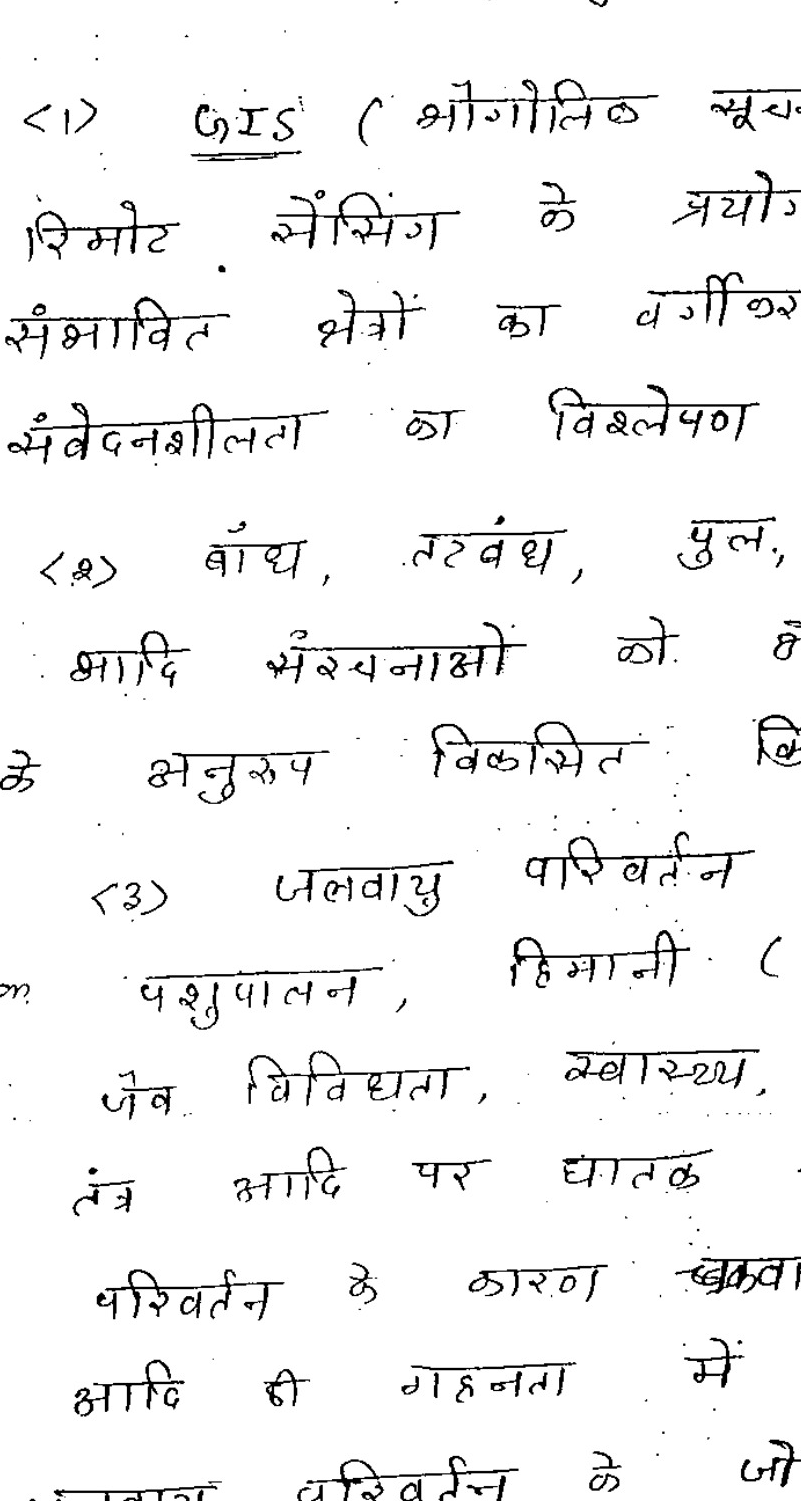 <1> GIS ( भौगोलिक सूच
रिमोट सेंसिंग के प्रयोग
संभावित क्षेत्रों का वर्गीकर
संवेदनशीलता का विश्लेषण
<२> बाँध, तटबंध, पुल,
आदि संरचनाओं को
के अनुरुप विकसित कि
<३> जलवायु परिवर्तन
पशुपालन, हिमानी (
जैव विविधता, स्वास्थ्य,
तंत्र आदि पर घातक
परिवर्तन के कारण
आदि की गहनता में
परिवर्तन के जो